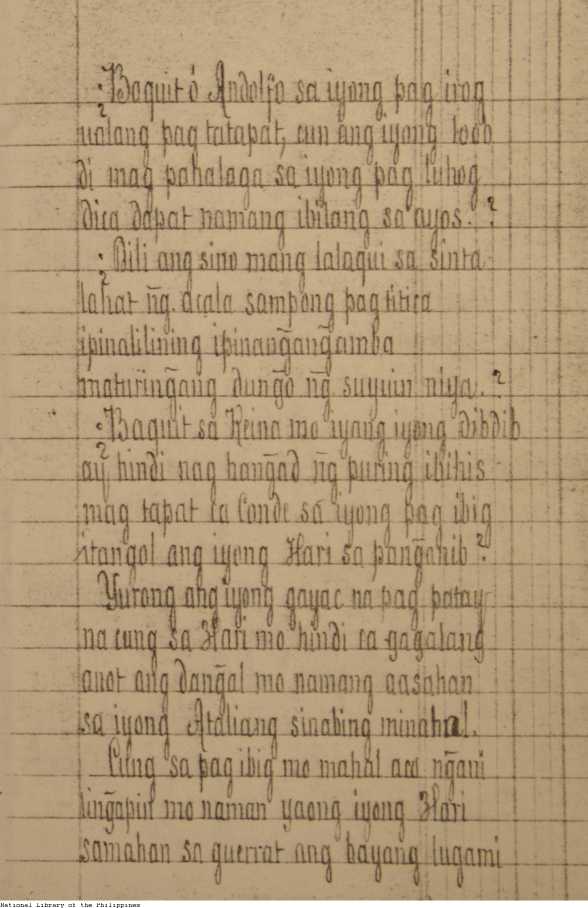 ¿Baquit ó Andolfo sa iyong pag irog
ualang pag tatapat, cun ang iyong loob
di mag pahalaga sa iyong pag luhog
dica dapat namang ibilang sa ayos.?
¿Dili ang sino mang lalaqui sa sinta
lahat ñg. acala sampong pagtitica
ipinalilining ipinanḡanḡamba
maturinḡang dunḡo ñg suyuin niya.?
¿Baquit sa Reina mo iyang iyong dibdib
ay hindi nag hanḡad ñg puring ibihis
mag tapat ca Conde sa iyong pag ibig
itangol ang iyong Hari sa panḡanib?
Yurong ang iyong gayac na pag patay
na cung sa Hari mo hindi ca gagalang
anot ang danḡal mo namang aasahan
sa iyong Ataliang sinabing minahal.
Cung sa pag ibig mo mahal aco nḡani
linḡapin mo naman yaong iyong Hari
samahan sa guerrat ang bayang lugami
National Library of the Philippines